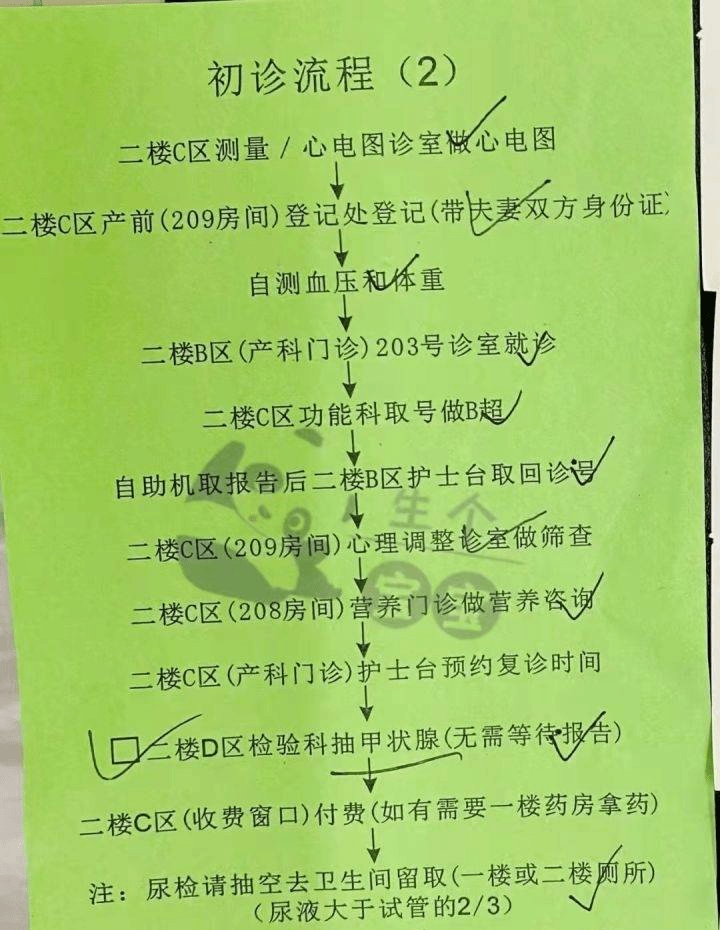 初诊流程（2）
二楼C区测量/心电图诊室做心电图
二楼C区产前(209房间)登记处登记(带夫妻双方身份证)
自测血压和体重
二楼B区(产科门诊)203号诊室就诊
二楼C区功能科取号做B超
自助机取报告后二楼B区护士台取回诊号
二楼C区(209房间)心理调整诊室做筛查
二楼C区(208房间)营养门诊做营养咨询
二楼C区(产科门诊)护士台预约复诊时间
二楼D区检验科抽甲状腺(无需等待报告)
二楼C区(收费窗口)付费(如有需要一楼药房拿药)
注：尿检请抽空去卫生间留取(一楼或二楼厕所)
（尿液大于试管的2/3）
生个
宝宝